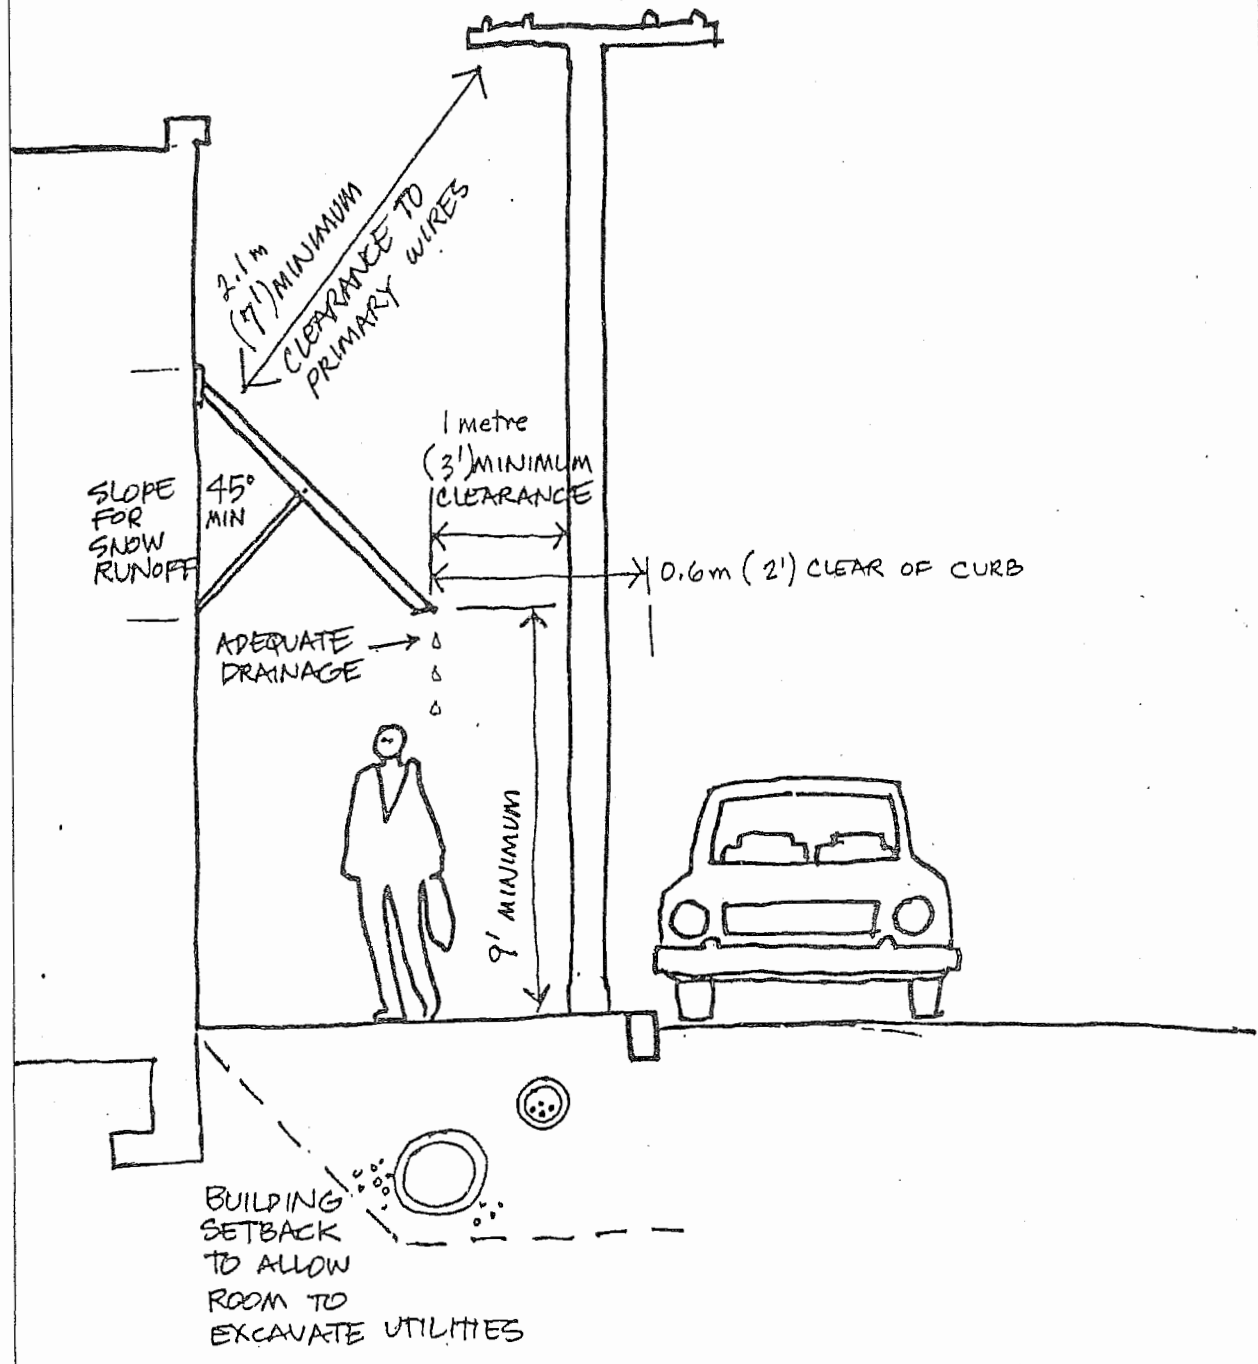 2.1m
(7') MINIMUM
CLEARANCE TO
PRIMARY WIRES
1 metre
(3') MINIMUM
CLEARANCE
SLOPE
FOR
SNOW
RUNOFF
45°
MIN
0.6m (2') CLEAR OF CURB
ADEQUATE
DRAINAGE
9' MINIMUM
BUILDING
SETBACK
TO ALLOW
ROOM TO
EXCAVATE UTILITIES